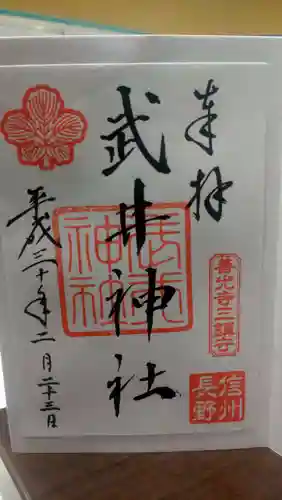 奉拝
善光寺三鎮守
信州
長野
武井神社
長野
神社
平成三十年二月二十三日